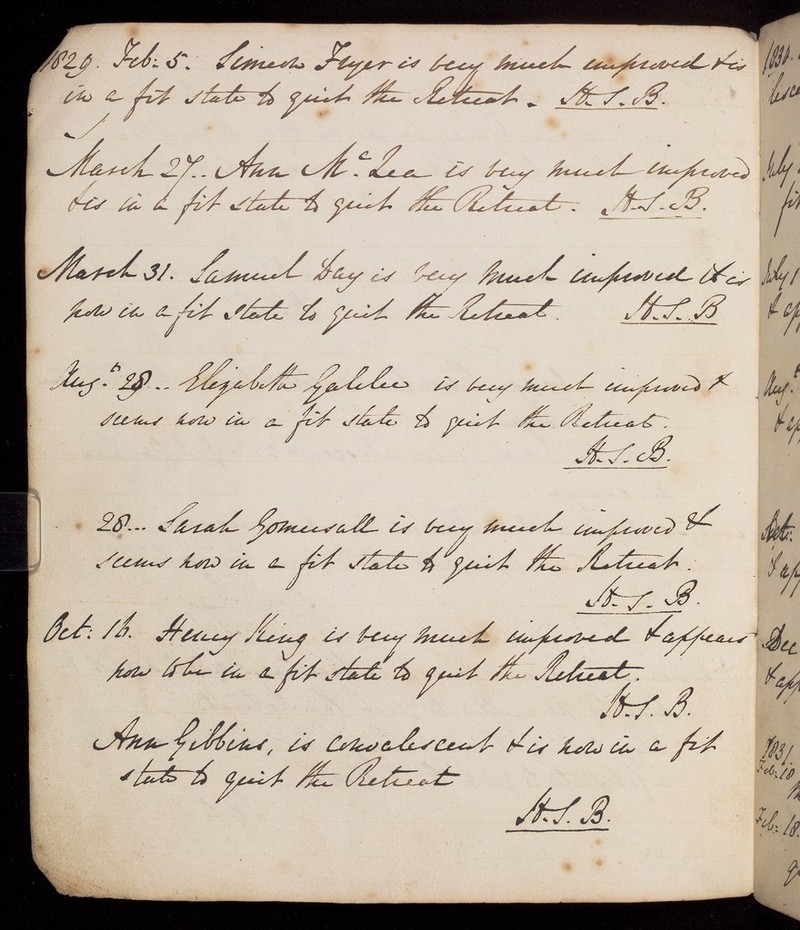 1829. Feb: 5. Simeon Fryer is very much improved & is
in a fit state to quit the Retreat. H. S. B.
March 27.. Ann Mc. Lea is very much improved
& is in a fit state to quit the Retreat. H. S. B.
March 31. Samuel Day is very much improved & is
now in a fit state to quit the Retreat. H. S. B
Aug.t 28.. Elizabeth Galilee is very much improved &
seems now in a fit state to quit the Retreat.
H. S. B.
28... Sarah Gomersall is very much improved &
seems now in a fit state to quit the Retreat.
H. S. B.
Oct: 16. Henry King is very much improved & appears
now to be in a fit state to quit the Retreat.
H. S. B.
Ann Gibbins, is convalescent & is now in a fit
state to quit the Retreat
H. S. B.
1830.
July
fit
July 1
& ap
Aug.t
& ap
& ap
Dec
& app
1831
Feb: 18
Feb: 18.